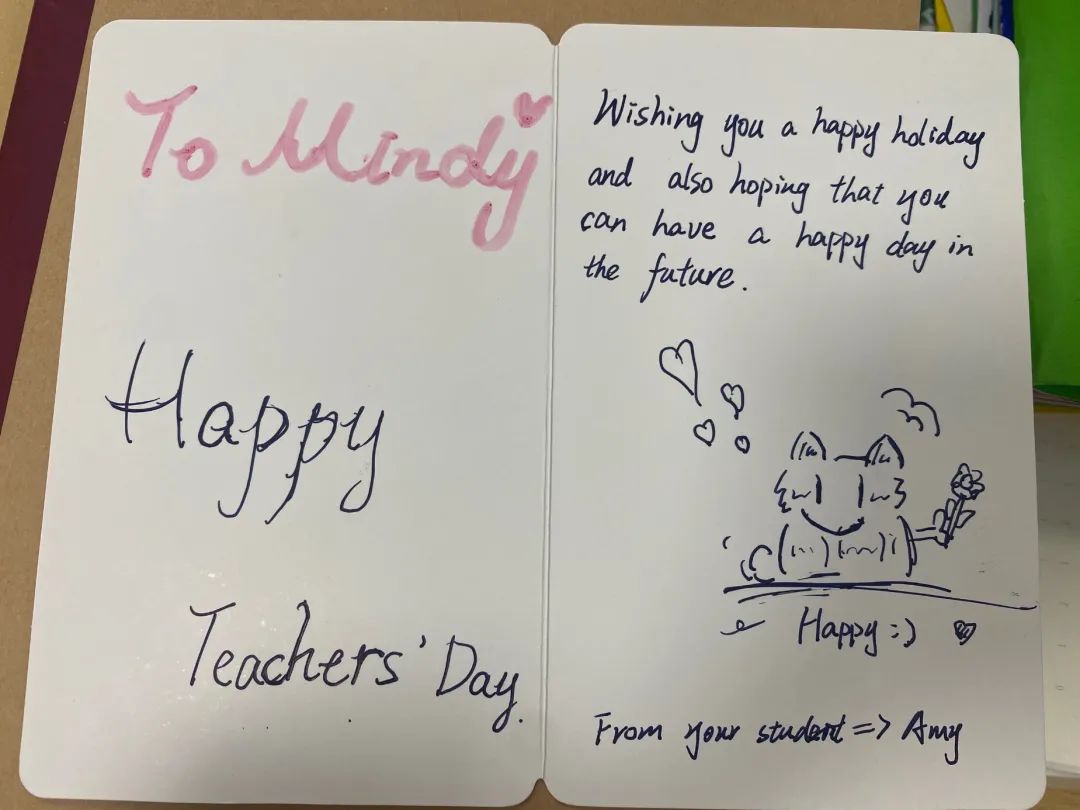 To Mindy
Happy
Teachers' Day.
Wishing you a happy holiday
and also hoping that you
can have a happy day in
the future.
Happy :)
From your student => Amy